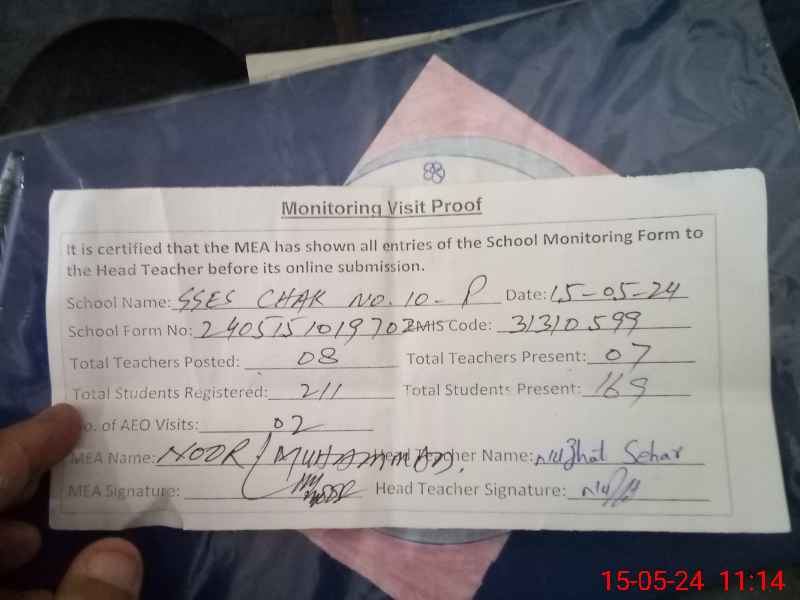 Monitoring Visit Proof
It is certified that the MEA has shown all entries of the School Monitoring Form to
the Head Teacher before its online submission.
School Name: SSES CHAK NO. 10-P Date: 15-05-24
School Form No: 24051510197 EMIS Code: 31310599
Total Teachers Posted: 08 Total Teachers Present: 07
Total Students Registered: 211 Total Students Present: 169
No. of AEO Visits: 02
MEA Name: NOOR MUHAMMAD. Head Teacher Name: Nuzhat Sehar
MEA Signature: Head Teacher Signature:
15-05-24 11:14